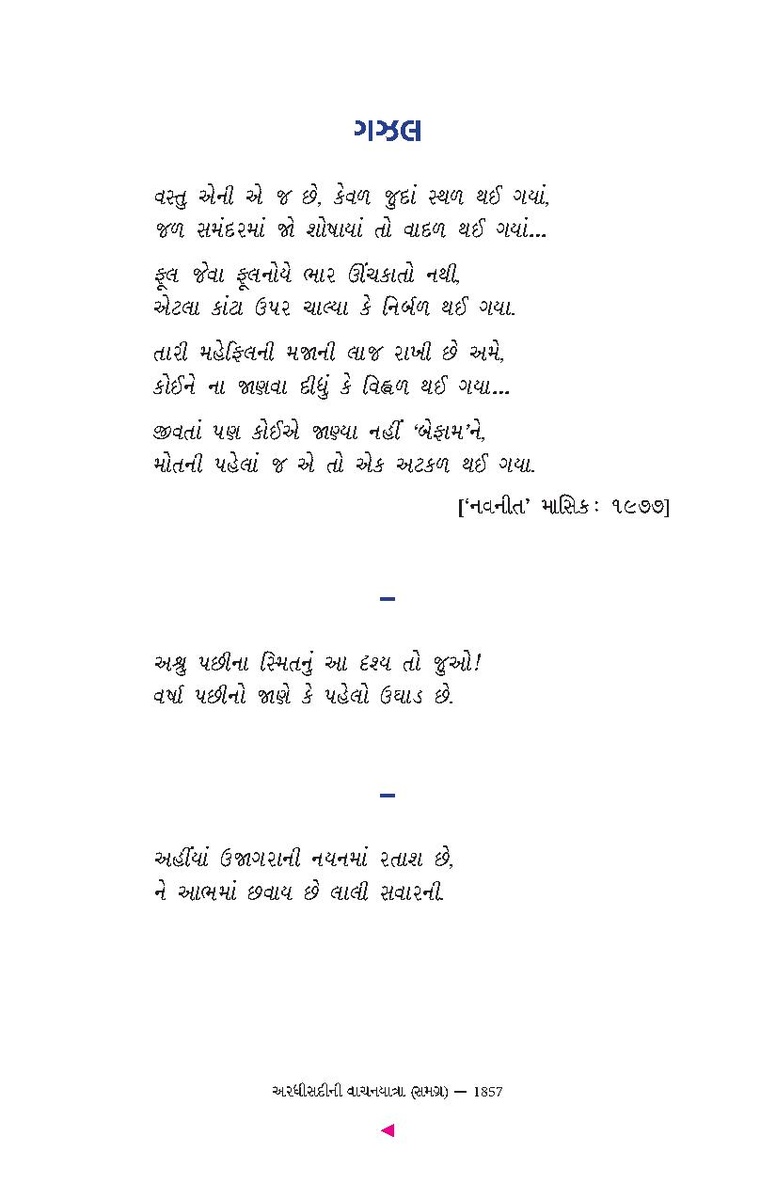 ગઝલ
વસ્તુ એની એ જ છે, કેવળ જુદાં સ્થળ થઈ ગયાં,
જળ સમંદરમાં જો શોષાયાં તો વાદળ થઈ ગયાં...
ફૂલ જેવા ફૂલનોયે ભાર ઊંચકાતો નથી,
એટલા કાંટા ઉપર ચાલ્યા કે નિર્બળ થઈ ગયા.
તારી મહેફિલની મજાની લાજ રાખી છે અમે,
કોઈને ના જાણવા દીધું કે વિહ્વળ થઈ ગયા...
જીવતાં પણ કોઈએ જાણ્યા નહીં ‘બેફામ’ને,
મોતની પહેલાં જ એ તો એક અટકળ થઈ ગયા.
[‘નવનીત’ માસિક: ૧૯૭૭]
–
અશ્રુ પછીના સ્મિતનું આ દૃશ્ય તો જુઓ!
વર્ષા પછીનો જાણે કે પહેલો ઉઘાડ છે.
–
અહીંયાં ઉજાગરાની નયનમાં રતાશ છે,
ને આભમાં છવાય છે લાલી સવારની.
અરધીસદીની વાચનયાત્રા (સમગ્ર) — 1857